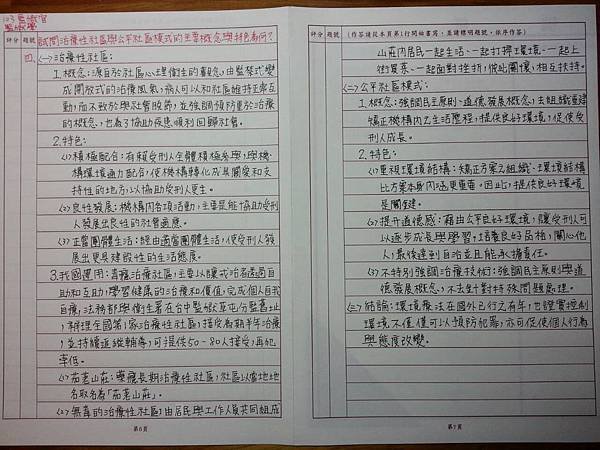 103監獄官
監獄學
評分 題號 試問治療性社區與公平社區模式的主要概念與特色為何?
四、 (一)治療性社區:
1.概念:源自於社區心理衛生的觀念,由監禁式變
成開放式的治療風氣,病人可以和社區維持正常互
動,而不致於與社會脫節,並強調預防重於治療
的概念,也為了協助疾患順利回歸社會。
2.特色:
(1)積極配合:有賴受刑人全體積極參與,與機
構環境通力配合,使機構轉化成具關愛和支
持性的地方,以協助受刑人更生。
(2)良性發展:機構內各項活動,主要是能協助受刑
人發展出良性的社會適應。
(3)正當團體生活:經由適當團體生活,使受刑人發
展出更具建設性的生活態度。
3.我國運用:毒癮治療社區,主要以讓成治者透過自
助和互助,學習健康的治療和價值,完成個人自我
治療,法務部與衛生署在台中監獄草屯分監舊址
,辦理全國第1家治療性社區,接受為期半年治療
,並持續追蹤輔導,可提供50-80人接受,再犯
率低。
(1)茄荖山莊:藥癮長期治療性社區,社區以當地地
名取名為「茄荖山莊」。
(2)無真的治療性社區由居民與工作人員共同組成
第6頁
評分 題號 (作答請從本頁第1行開始書寫,並請標明題號,依序作答)
山莊內居民一起生活、一起打掃環境、一起上
街買菜、一起面對挫折,彼此關懷,相互扶持。
(二)公平社區模式:
1.概念:強調民主原則、道德發展概念,去組織重建
矯正機構內之生活歷程,提供良好環境,促使受
刑人成長。
2.特色:
(1)重視環境結構:矯正方案之組織、環境結構
比方案本身內涵更重要。因此,提供良好環境
是關鍵。
(2)提升道德感:藉由公平良好環境,讓受刑人可
以逐步成長與學習,培養良好品格,關心他
人,最後達到自治並且能承擔責任。
(3)不特別強調治療技術:強調民主原則與道
德發展概念,不去針對特殊問題處理。
(三)結論:環境療法在國外已行之有年,也證實控制
環境不僅僅可以預防犯罪,亦可促使個人行為
與態度改變。
第7頁